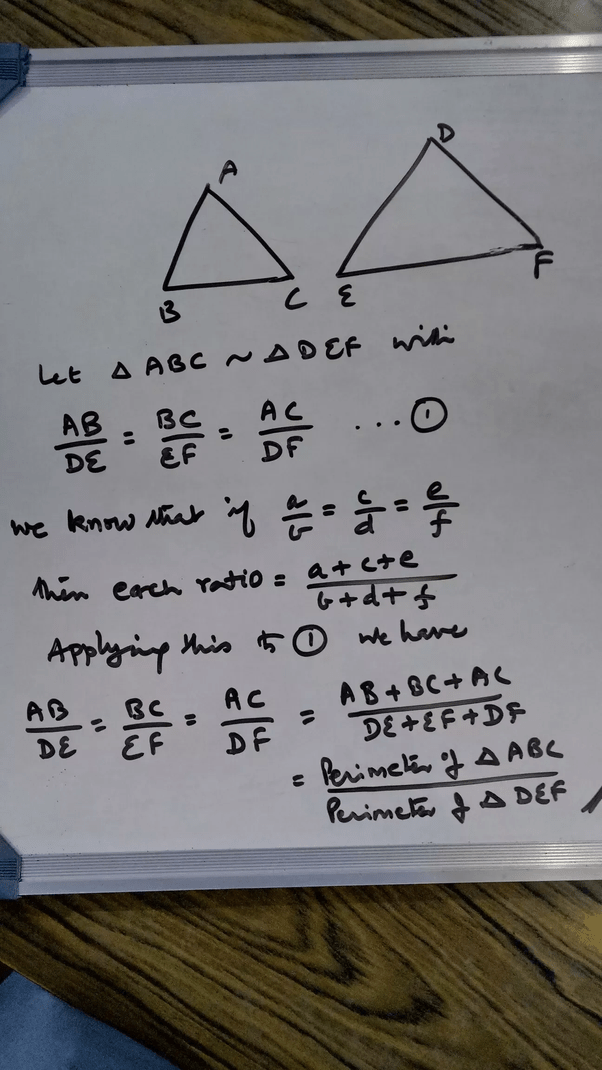 A
D
B
C
E
F
Let Δ ABC ~ Δ DEF with
AB/DE = BC/EF = AC/DF ...①
we know that if a/b = c/d = e/f
then each ratio = a+c+e/b+d+f
Applying this to ① we have
AB/DE = BC/EF = AC/DF = AB+BC+AC/DE+EF+DF
= Perimeter of Δ ABC/Perimeter of Δ DEF //